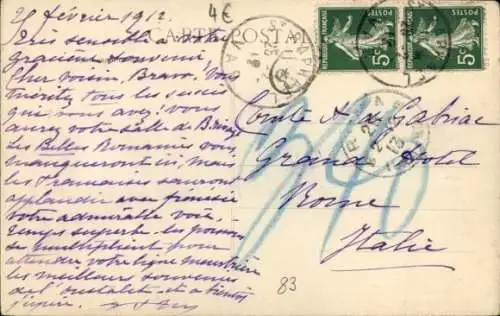 25 février 1912
4€
CARTE POSTALE
Très sensible à votre
gracieux souvenir,
cher voisin, Bravo. Vous
méritez tous les succès
que vous avez! Vous
aurez votre salle de
Les Belles Romaines vous
manqueront ici, mais
les Françaises sauront
applaudir avec frénésie
votre admirable voix.
Temps superbe les
se multiplient pour
attendre votre ligne
les meilleurs souvenirs
de l' et à bientôt
j'espère.
REPUBLIQUE FRANÇAISE
POSTES
5c
REPUBLIQUE FRANÇAISE
POSTES
5c
Comte A de Gabriac
Grand Hotel
Rome
Italie
83